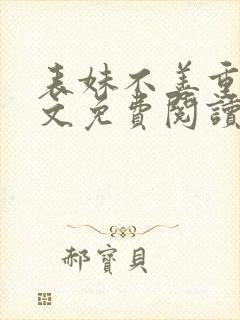 表妹不善重
文免費閱讀
郝寶貝